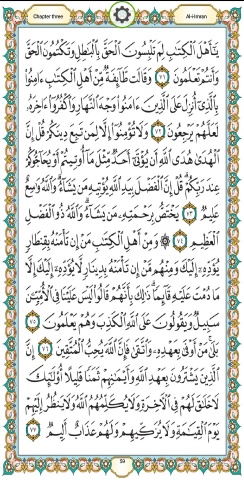 Chapter three
Al-imran
يَٰٓأَهْلَ ٱلْكِتَٰبِ لِمَ تَلْبِسُونَ ٱلْحَقَّ بِٱلْبَٰطِلِ وَتَكْتُمُونَ ٱلْحَقَّ
وَأَنتُمْ تَعْلَمُونَ ٧١ وَقَالَت طَّآئِفَةٌ مِّنْ أَهْلِ ٱلْكِتَٰبِ ءَامِنُوا۟
بِٱلَّذِىٓ أُنزِلَ عَلَى ٱلَّذِينَ ءَامَنُوا۟ وَجْهَ ٱلنَّهَارِ وَٱكْفُرُوٓا۟ ءَاخِرَهُۥ
لَعَلَّهُمْ يَرْجِعُونَ ٧٢ وَلَا تُؤْمِنُوٓا۟ إِلَّا لِمَن تَبِعَ دِينَكُمْ قُلْ إِنَّ
ٱلْهُدَىٰ هُدَى ٱللَّهِ أَن يُؤْتَىٰٓ أَحَدٌ مِّثْلَ مَآ أُوتِيتُمْ أَوْ يُحَآجُّوكُمْ
عِندَ رَبِّكُمْ قُلْ إِنَّ ٱلْفَضْلَ بِيَدِ ٱللَّهِ يُؤْتِيهِ مَن يَشَآءُ وَٱللَّهُ وَٰسِعٌ
عَلِيمٌ ٧٣ يَخْتَصُّ بِرَحْمَتِهِۦ مَن يَشَآءُ وَٱللَّهُ ذُو ٱلْفَضْلِ
ٱلْعَظِيمِ ٧٤ ۞ وَمِنْ أَهْلِ ٱلْكِتَٰبِ مَنْ إِن تَأْمَنْهُ بِقِنطَارٍ
يُؤَدِّهِۦٓ إِلَيْكَ وَمِنْهُم مَّنْ إِن تَأْمَنْهُ بِدِينَارٍ لَّا يُؤَدِّهِۦٓ إِلَيْكَ إِلَّا
مَا دُمْتَ عَلَيْهِ قَآئِمًا ذَٰلِكَ بِأَنَّهُمْ قَالُوا۟ لَيْسَ عَلَيْنَا فِى ٱلْأُمِّيِّـۧنَ
سَبِيلٌ وَيَقُولُونَ عَلَى ٱللَّهِ ٱلْكَذِبَ وَهُمْ يَعْلَمُونَ ٧٥
بَلَىٰ مَنْ أَوْفَىٰ بِعَهْدِهِۦ وَٱتَّقَىٰ فَإِنَّ ٱللَّهَ يُحِبُّ ٱلْمُتَّقِينَ ٧٦ إِنَّ
ٱلَّذِينَ يَشْتَرُونَ بِعَهْدِ ٱللَّهِ وَأَيْمَٰنِهِمْ ثَمَنًا قَلِيلًا أُو۟لَٰٓئِكَ
لَا خَلَٰقَ لَهُمْ فِى ٱلْـَٔاخِرَةِ وَلَا يُكَلِّمُهُمُ ٱللَّهُ وَلَا يَنظُرُ إِلَيْهِمْ
يَوْمَ ٱلْقِيَٰمَةِ وَلَا يُزَكِّيهِمْ وَلَهُمْ عَذَابٌ أَلِيمٌ ٧٧
59